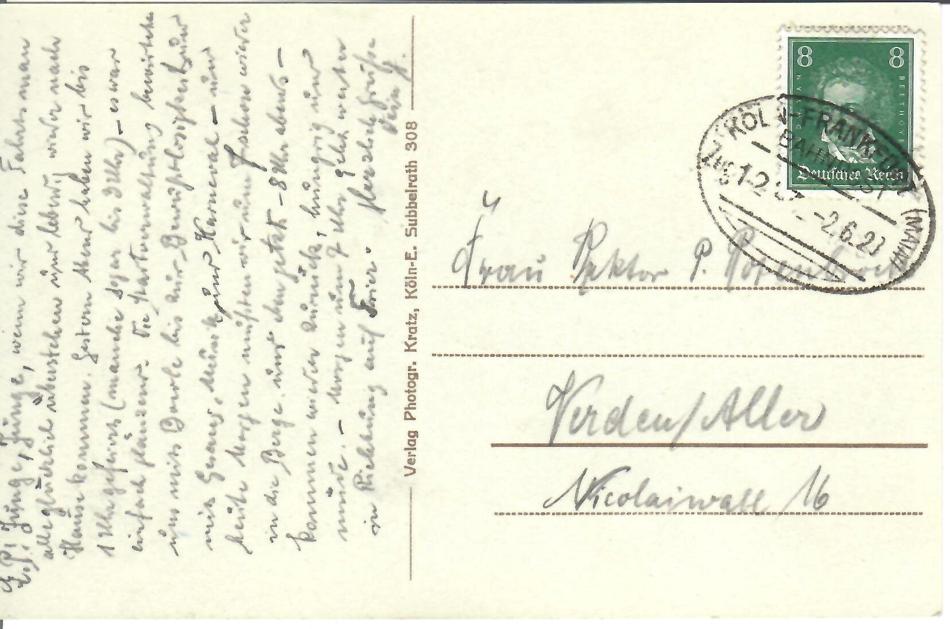 L. P.! Junge, Junge, wenn wir diese Fahrt man
alle glücklich überstehen und lebendig wieder nach
Hause kommen. Gestern Abend haben wir bis
1 Uhr gefeiert (manche sogar bis 3 Uhr) – es war
einfach glänzend. Die verwaltung bewirtete
uns mit Bowle bis zur Bewußtlosigkeit und
mit Gesang, Musik und Karneval – und
heute Morgen mußten wir um 7 schon wieder
in die Berge und – 8 Uhr abends –
kommen wieder zurück, hungrig und
müde. – Morgen um 7 Uhr geht's weiter
in Richtung auf Trier. Herzlichste Grüße
Dein
Verlag Photogr. Kratz, Köln-E. Subbelrath 308
8 8
BEETHOVEN
Deutsches Reich
KÖLN-FRANKFURT (MAIN)
BAHNPOST
ZUG
-2.6.28
Frau Rektor P.
Verden/Aller
Nicolaiwall 16